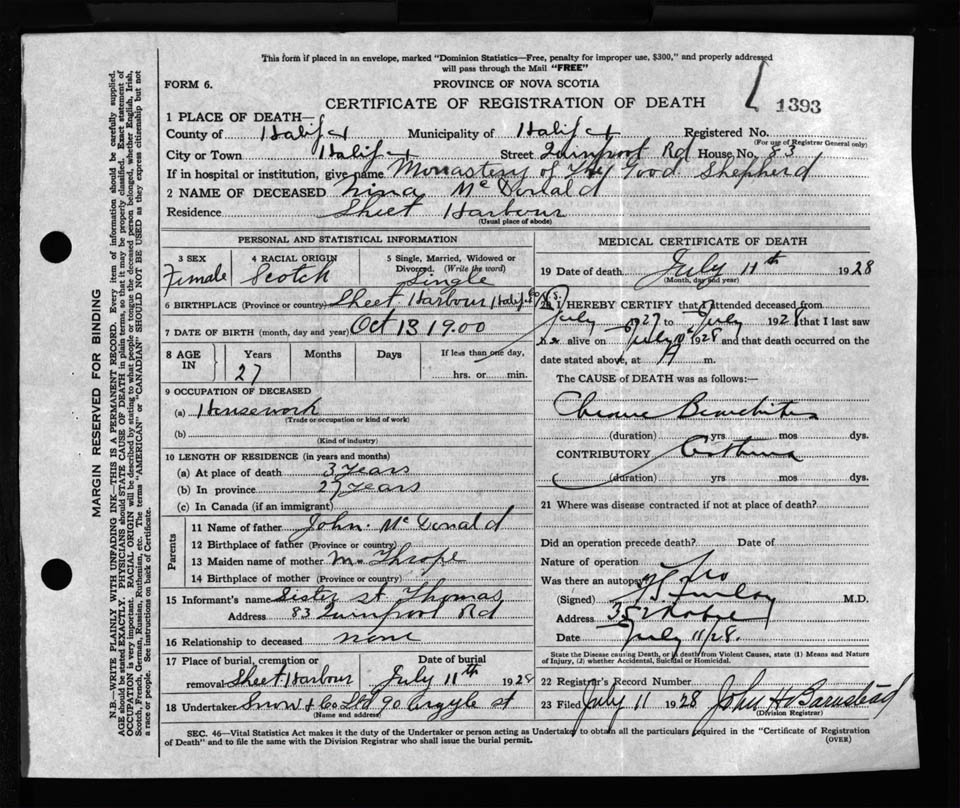 This form if placed in an envelope, marked "Dominion Statistics—Free, penalty for improper use, $300," and properly addressed
will pass through the Mail "FREE"
FORM 6.
PROVINCE OF NOVA SCOTIA
CERTIFICATE OF REGISTRATION OF DEATH
1393
1 PLACE OF DEATH—
County of Halifax Municipality of Halifax Registered No.
(For use of Registrar General only)
City or Town Halifax Street Quinpool Rd House No. 83
If in hospital or institution, give name Monastery of The Good Shepherd
2 NAME OF DECEASED Nina McDonald
Residence Sheet Harbour
(Usual place of abode)
PERSONAL AND STATISTICAL INFORMATION
3 SEX Female
4 RACIAL ORIGIN Scotch
5 Single, Married, Widowed or
Divorced. (Write the word)
Single
6 BIRTHPLACE (Province or country) Sheet Harbour Halif. Co N.S.
7 DATE OF BIRTH (month, day and year) Oct 13 1900
8 AGE IN
Years Months Days If less than one day,
27 hrs. or min.
9 OCCUPATION OF DECEASED
(a) Housework
(Trade or occupation or kind of work)
(b)
(Kind of industry)
10 LENGTH OF RESIDENCE (in years and months)
(a) At place of death 3 years
(b) In province 27 years
(c) In Canada (if an immigrant)
Parents
11 Name of father John McDonald
12 Birthplace of father (Province or country)
13 Maiden name of mother M Thrope
14 Birthplace of mother (Province or country)
15 Informant's name Sister St Thomas
Address 83 Quinpool Rd
16 Relationship to deceased none
17 Place of burial, cremation or Date of burial
removal Sheet Harbour July 11th 1928
18 Undertaker Snow & Co Ltd 90 Argyle St
(Name and address)
MEDICAL CERTIFICATE OF DEATH
19 Date of death July 11th 1928
(Month, day and year)
20 I HEREBY CERTIFY that I attended deceased from
July 1927 to July 1928 that I last saw
her alive on July 10 1928 and that death occurred on the
date stated above, at m.
The CAUSE OF DEATH was as follows:—
Chronic Bronchitis
(duration) yrs mos dys.
CONTRIBUTORY Asthma
(duration) yrs mos dys.
21 Where was disease contracted if not at place of death?
Did an operation precede death? Date of
Nature of operation
Was there an autopsy? No
(Signed) M.D.
Address
Date July 11/28.
State the Disease causing Death, or in death from Violent Causes, state (1) Means and Nature
of Injury, (2) whether Accidental, Suicidal or Homicidal.
22 Registrar's Record Number
23 Filed July 11 1928 John H Barnstead
(Division Registrar)
SEC. 46—Vital Statistics Act makes it the duty of the Undertaker or person acting as Undertaker to obtain all the particulars required in the "Certificate of Registration
of Death" and to file the same with the Division Registrar who shall issue the burial permit. (OVER)
MARGIN RESERVED FOR BINDING
N.B.—WRITE PLAINLY WITH UNFADING INK—THIS IS A PERMANENT RECORD. Every item of information should be carefully supplied.
AGE should be stated EXACTLY. PHYSICIANS should STATE CAUSE OF DEATH in plain terms, so that it may be properly classified. Exact statement of
OCCUPATION is very important. RACIAL ORIGIN will be described by stating to what people or tongue the deceased person belonged, whether English, Irish,
Scotch, French, German, Russian, Ruthenian, etc. The terms "AMERICAN" or "CANADIAN" SHOULD NOT BE USED as they express citizenship but not
a race or people. See instructions on back of Certificate.